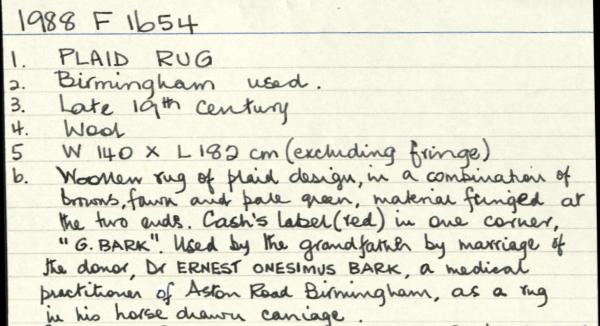 1988 F 1654
1. PLAID RUG
2. Birmingham used.
3. Late 19th century
4. Wool
5 W 140 x L 182 cm (excluding fringe)
6. Woollen rug of plaid design, in a combination of
browns, fawn and pale green, material fringed at
the two ends. Cash's label (red) in one corner,
"G. BARK". Used by the grandfather by marriage of
the donor, Dr ERNEST ONESIMUS BARK, a medical
practitioner of Aston Road Birmingham, as a rug
in his horse drawn carriage.